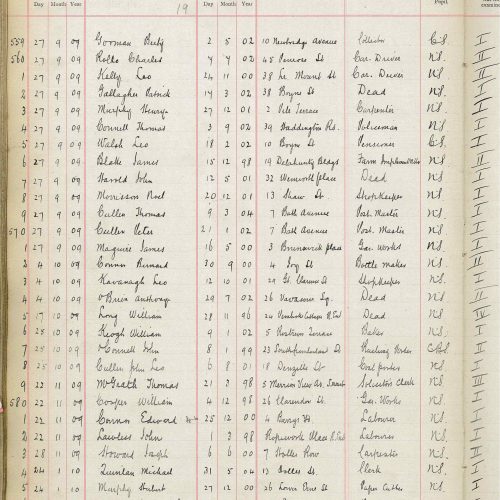 Day Month Year Day Month Year Pupil.
19
559 27 9 09 Gorman 2 5 02 10 Newbridge Avenue Collector C.S. I
560 27 9 09 Rolfe Charles 4 4 02 45 St Car. Driver N.S.
1 27 9 09 Kelly Leo 24 11 00 38 Lr. Mount St Car. Driver N.S.
2 27 9 09 Gallagher Patrick 14 3 02 38 Boyne St Dead N.S.
3 27 9 09 Murphy Henry 27 12 01 2 Terrace Carpenter N.S.
4 27 9 09 Connell Thomas 3 9 02 39 Haddington Rd. Policeman N.S.
5 27 9 09 Walsh Leo 18 2 02 10 Boyne St Pensioner C.S.
6 27 9 09 Blake James 15 12 98 19 Delahunty Bldgs Farm N.S.
7 27 9 09 Harold John 12 5 01 32 Wentworth place Dead N.S.
8 27 9 09 Morrisson Noel 20 12 01 13 Shaw St. Shopkeeper N.S.
9 27 9 09 Cullen Thomas 9 3 04 7 Bath Avenue Post. Master N.S.
570 27 9 09 Cullen Peter 21 1 02 7 Bath Avenue Post. Master N.S.
1 27 9 09 Maguire James 16 5 00 3 Brunswick place Gas Works N.S.
2 4 10 09 Connor Bernard 30 9 00 4 St Bottle maker N.S.
3 4 10 09 Kavanagh Leo 12 10 01 29 Gt. Clarence St Shopkeeper N.S.
4 4 10 09 O'Brien Anthony 29 7 02 26 Sq. Dead N.S.
5 17 10 09 Long William 28 11 96 24 Pembroke Cottages Dead N.S.
6 25 10 09 Keogh William 9 1 02 5 Terrace Baker N.S.
7 25 10 09 O'Connell John 8 1 99 23 South Cumberland St Railway Porter
8 25 10 09 Cullen John Leo 6 8 01 18 Denzille St Coal porter N.S.
9 22 11 09 McGrath Thomas 21 2 98 5 Merrion View Av. Solicitors Clerk N.S.
580 22 11 09 Cooper William 4 12 98 26 Clarendon St Gas. Works N.S.
1 22 11 09 Connor Edward 25 12 00 4 Labourer N.S.
2 22 11 09 Lawless John 1 3 98 Ropework Place Labourer N.S.
3 28 11 09 Howard Joseph 6 6 00 7 Holles Row Carpenter N.S.
4 24 1 10 Quinlan Michael 31 5 04 12 Holles St Clerk N.S.
5 24 1 10 Murphy 27 12 00 26 Love Lane St Paper Cutter N.S.